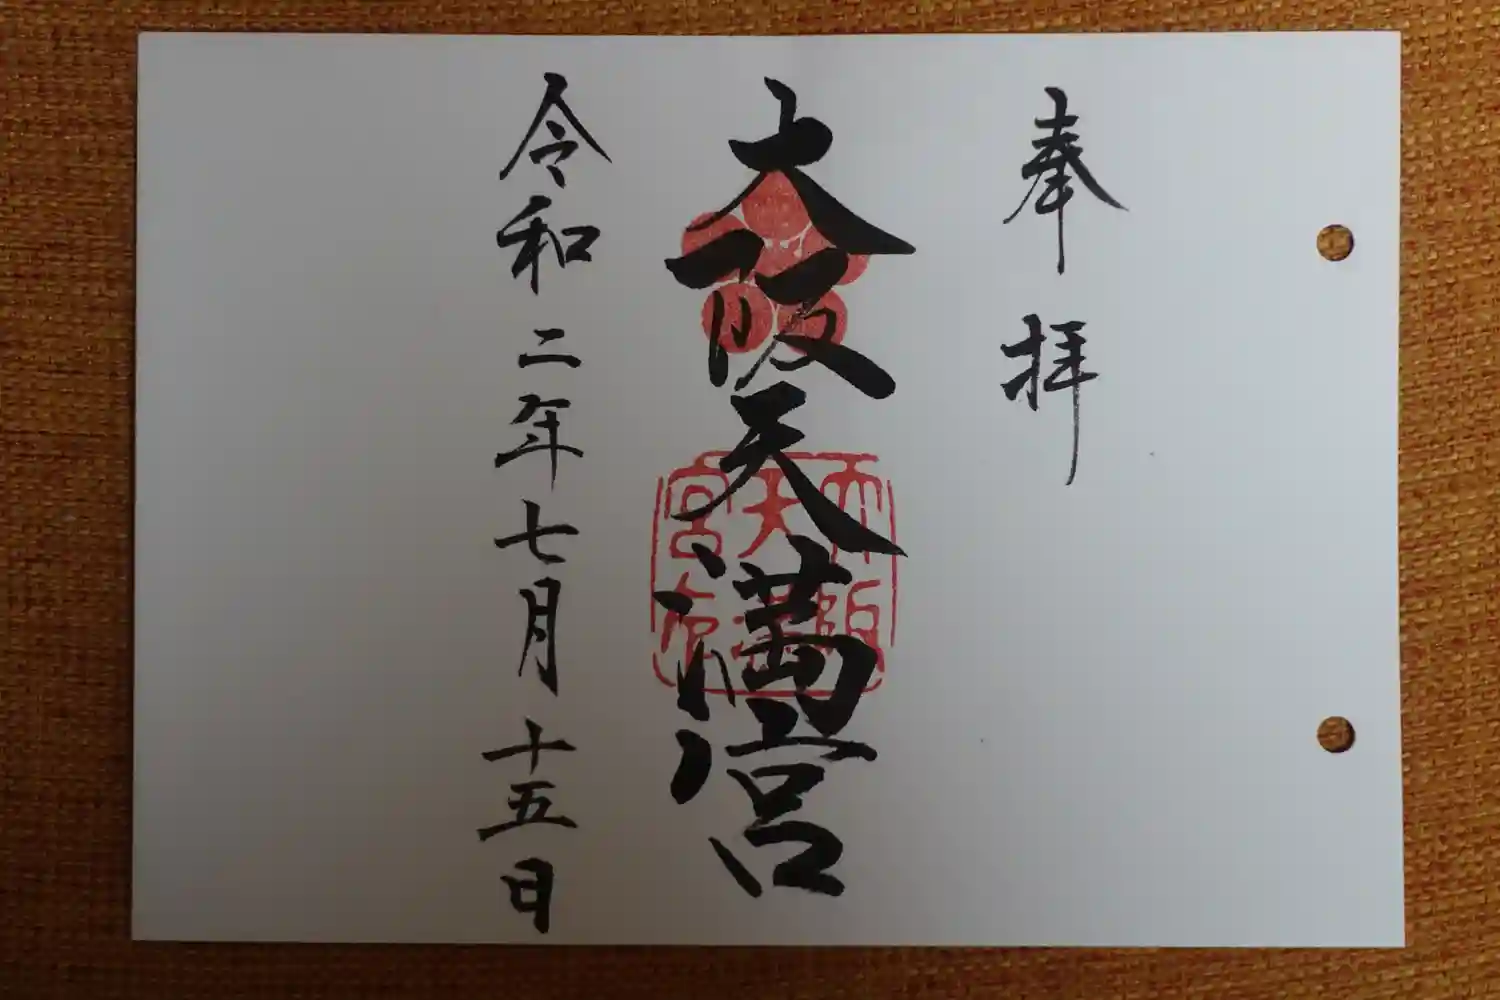 奉拝
大阪天満宮
大阪天満宮
令和二年七月十五日